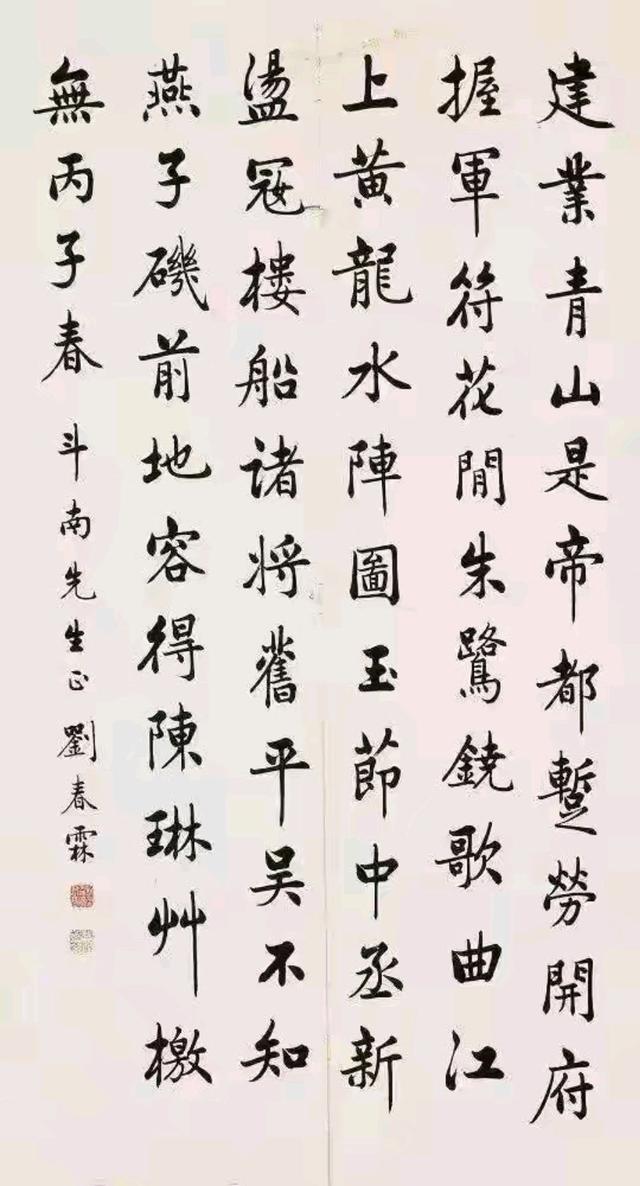 建業青山是帝都蹔勞開府
握軍符花間朱鷺鐃歌曲江
上黃龍水陣圖玉節中丞新
盪冦樓船諸將舊平吴不知
燕子磯前地容得陳琳艸檄
無丙子春 斗南先生正 劉春霖